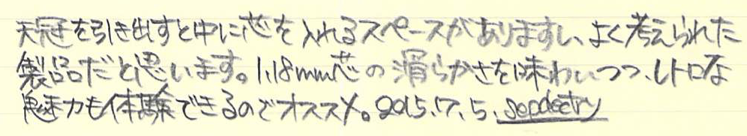 天冠を引き出すと中に芯を入れるスペースがありますし、よく考えられた
製品だと思います。1.18mm芯の滑らかさを味わいつつ、レトロな
魅力も体験できるのでオススメ。2015.7.5.